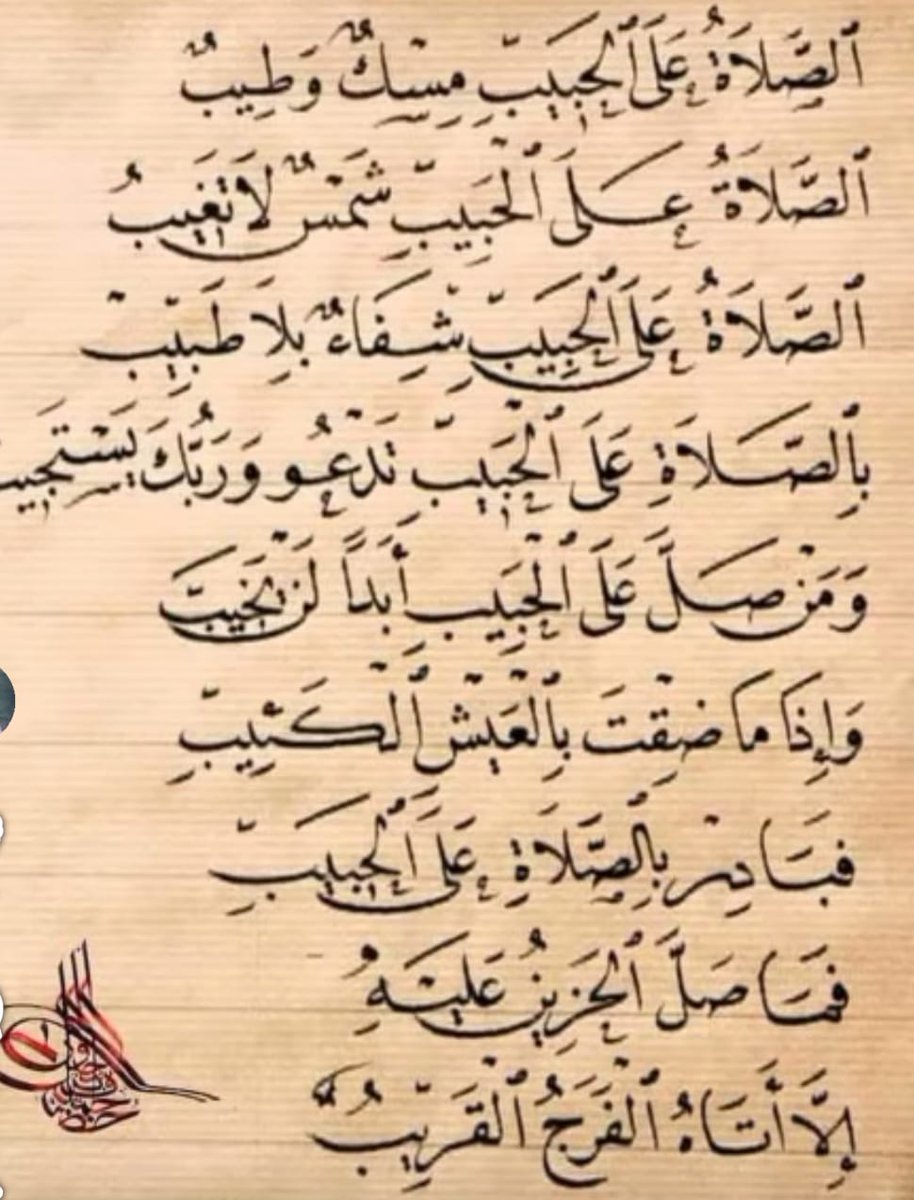 ٱلصَّلَاةُ عَلَى ٱلْحَبِيبِ مِسْكٌ وَطِيبٌ
ٱلصَّلَاةُ عَلَى ٱلْحَبِيبِ شَمْسٌ لَا تَغِيبُ
ٱلصَّلَاةُ عَلَى ٱلْحَبِيبِ شِفَاءٌ بِلَا طَبِيبٍ
بِٱلصَّلَاةِ عَلَى ٱلْحَبِيبِ تَدْعُو وَرَبُّكَ يَسْتَجِيب
وَمَنْ صَلَّ عَلَى ٱلْحَبِيبِ أَبَدًا لَنْ يَخِيبَ
وَإِذَا مَا ضِقْتَ بِٱلْعَيْشِ ٱلْكَئِيبِ
فَبَادِرْ بِٱلصَّلَاةِ عَلَى ٱلْحَبِيبِ
فَمَا صَلَّ ٱلْحَزِينُ عَلَيْهِ
إِلَّا أَتَاهُ ٱلْفَرَجُ ٱلْقَرِيبُ